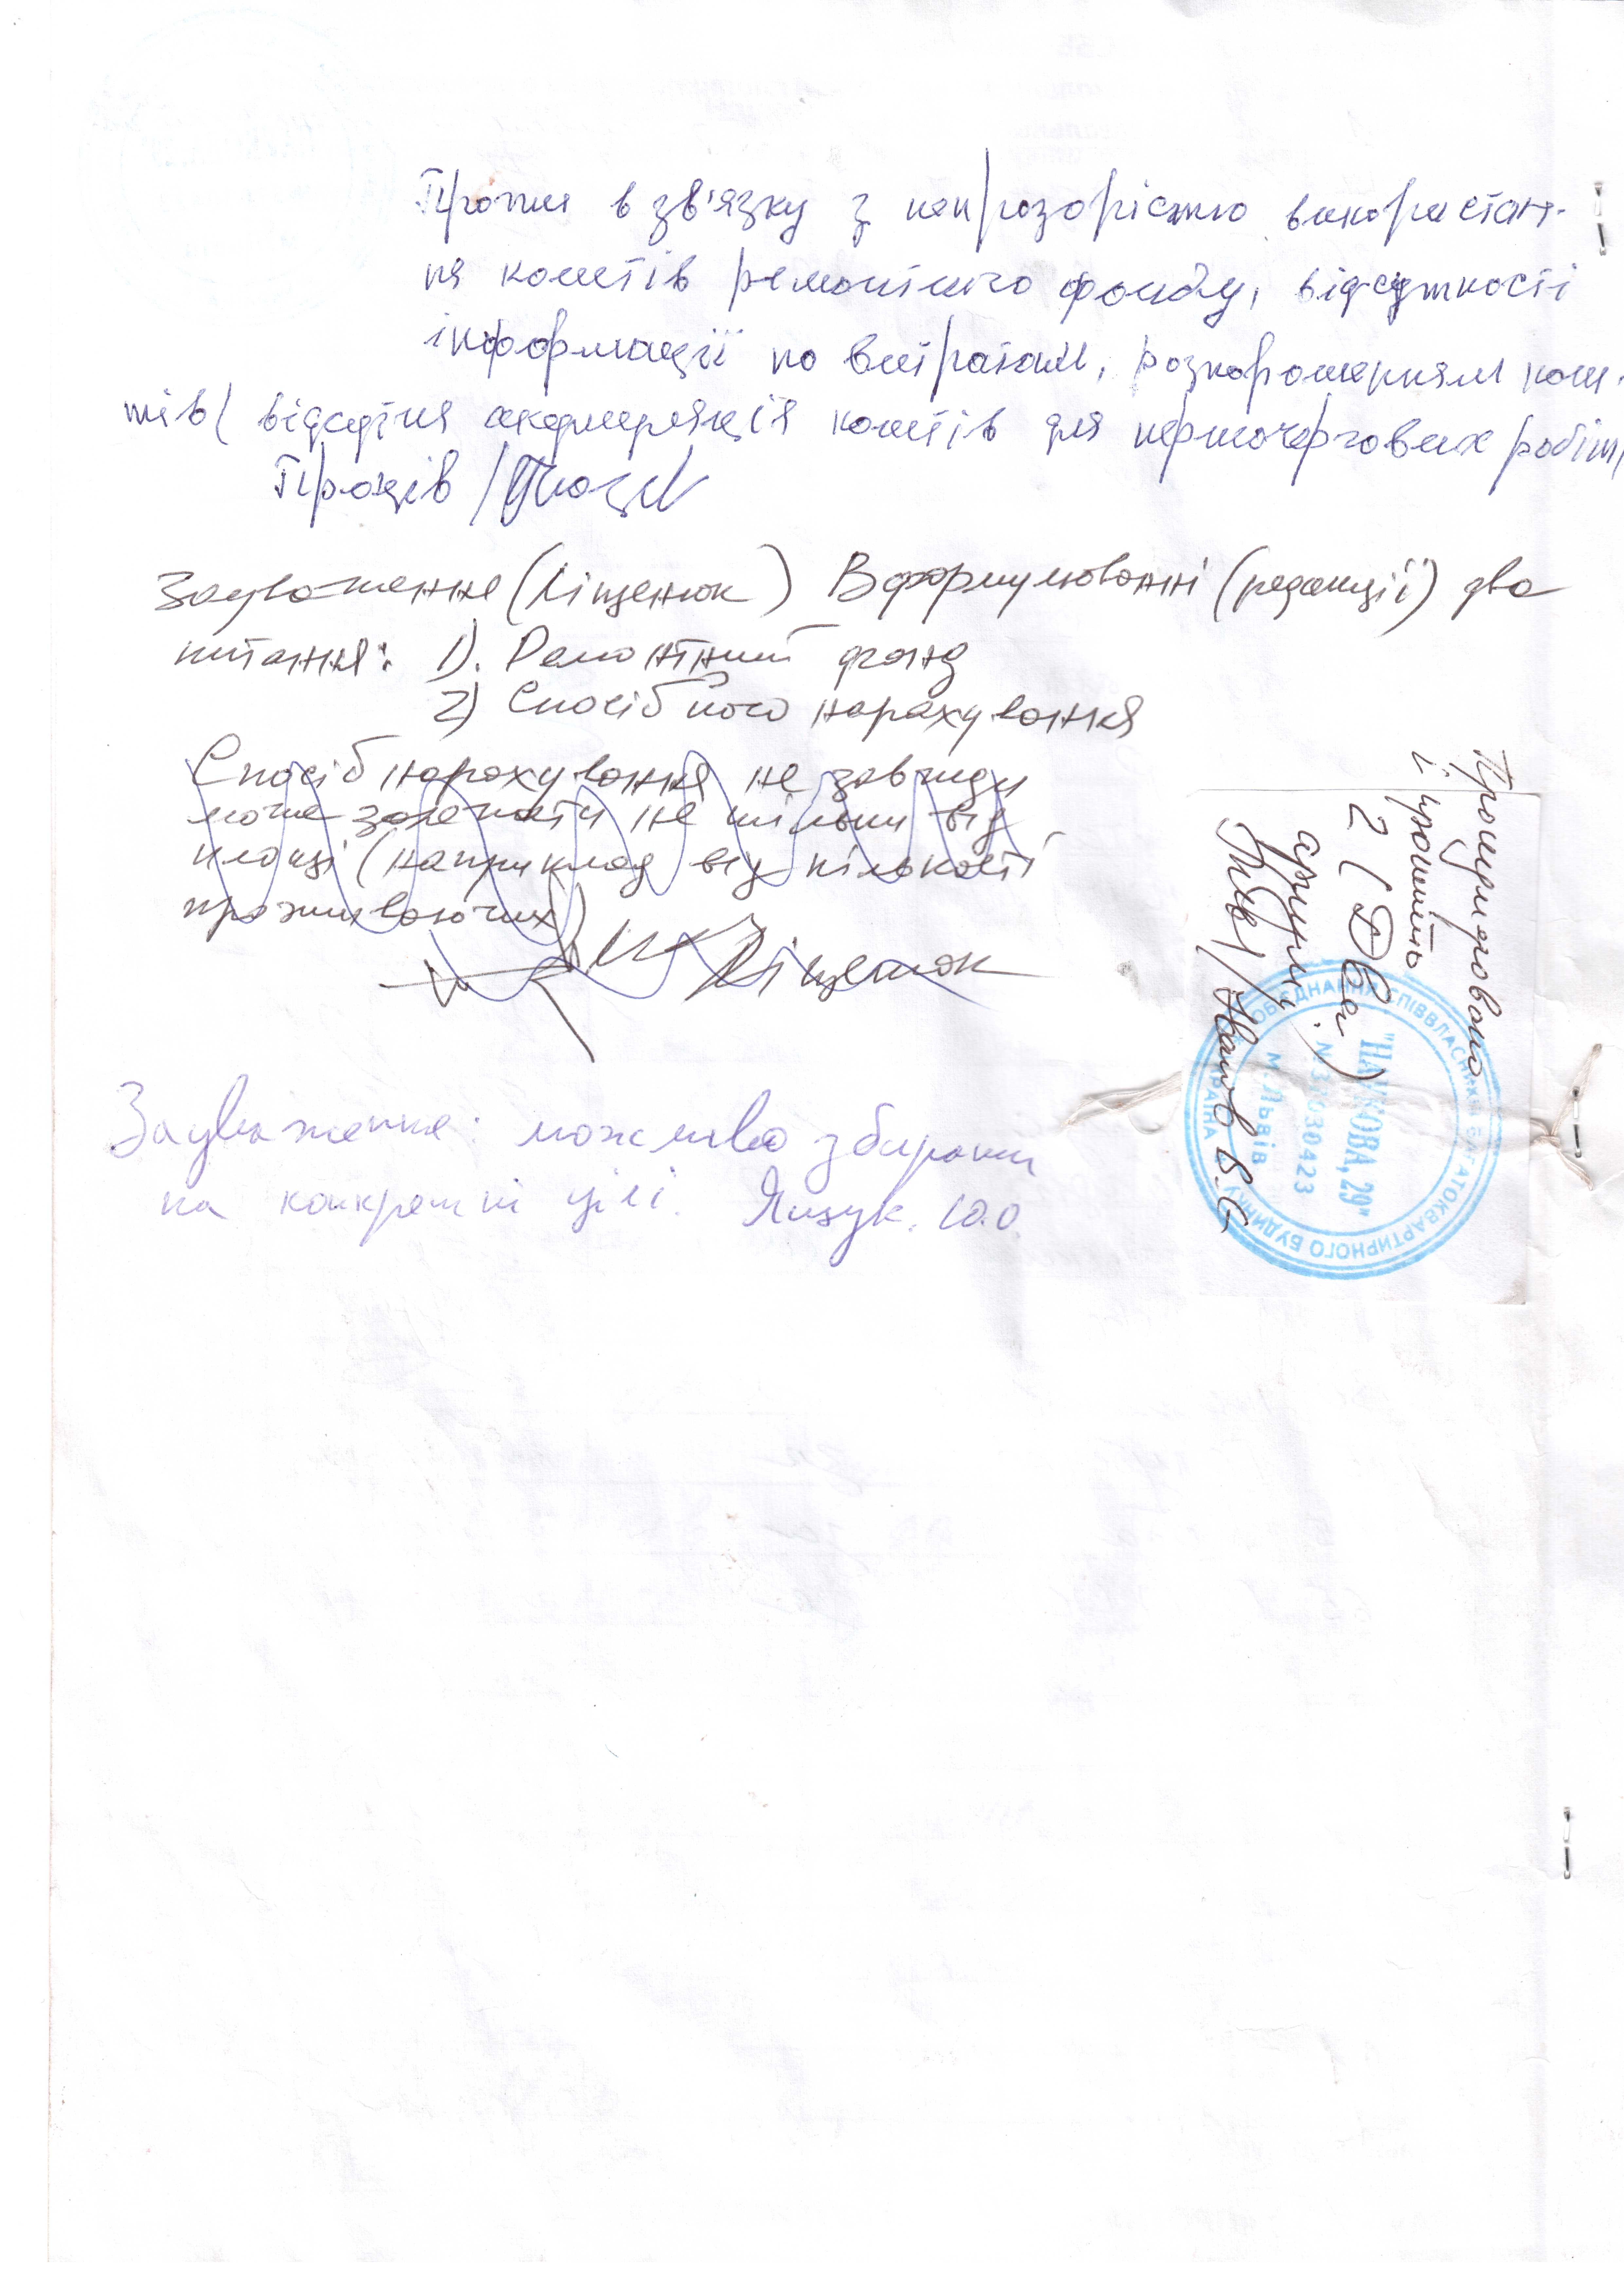 Проти в зв'язку з непрозорістю використан-
ня коштів ремонтного фонду, відсутності
інформації по витратам, розпорошенням кош-
тів( відсутня акумуляція коштів для першочергових робіт)
Проців /
Зауваження (Ліщенюк) В формулюванні (редакції) два
питання: 1). Ремонтний фонд
2) Спосіб його нарахування
Спосіб нарахування не завжди
може залежати не тільки від
площі (наприклад від кількості
проживаючих)
Ліщенюк
Зауваження: можливо збирати
на конкретні цілі. Яцук. Ю.О.
Прошнуровано
і
2 (Два)
аркуші
/Іванов В.С.
ОБ'ЄДНАННЯ СПІВВЛАСНИКІВ БАГАТОКВАРТИРНОГО БУДИНКУ
УКРАЇНА
"НАУКОВА, 29"
м. Львів